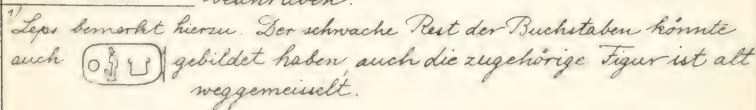 1) Leps bemerkt hierzu. Der schwache Rest der Buchstaben könnte
auch 𓍹𓇳𓁦𓂓𓍺 gebildet haben, auch die zugehörige Figur ist alt
weggemeisselt.